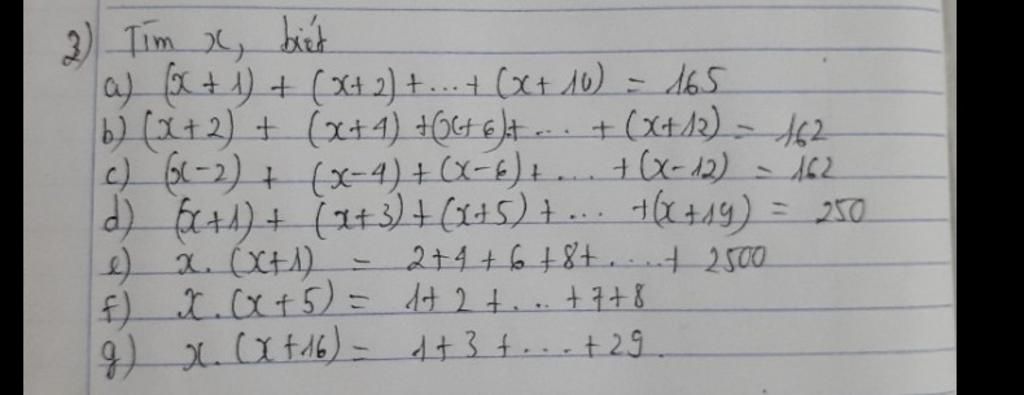 2) Tìm x, biết
a) (x + 1) + (x + 2) + ... + (x + 10) = 165
b) (x + 2) + (x + 4) + (x + 6) + ... + (x + 12) = 162
c) (x - 2) + (x - 4) + (x - 6) + ... + (x - 12) = 162
d) (x + 1) + (x + 3) + (x + 5) + ... + (x + 19) = 250
e) x . (x + 1) = 2 + 4 + 6 + 8 + .... + 2500
f) x . (x + 5) = 1 + 2 + ... + 7 + 8
g) x . (x + 16) = 1 + 3 + ... + 29.